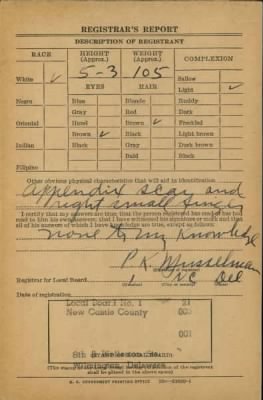 REGISTRAR'S REPORT
DESCRIPTION OF REGISTRANT
RACE HEIGHT (Approx.) WEIGHT (Approx.) COMPLEXION
White ✓ 5-3 105 Sallow
Light ✓
EYES HAIR
Negro Blue Blonde Ruddy
Gray Red Dark
Oriental Hazel Brown ✓ Freckled
Brown ✓ Black Light brown
Indian Black Gray Dark brown
Bald Black
Filipino
Other obvious physical characteristics that will aid in identification
appendix scar and
right small finger
I certify that my answers are true; that the person registered has read or has had
read to him his own answers; that I have witnessed his signature or mark and that
all of his answers of which I have knowledge are true, except as follows:
none to my knowledge
P. K. Musselman
Registrar for Local Board 1 NC Del
Date of registration
Local Board No. 1 21
New Castle County 003
001
8th &
Wilmington, Delaware
U. S. GOVERNMENT PRINTING OFFICE